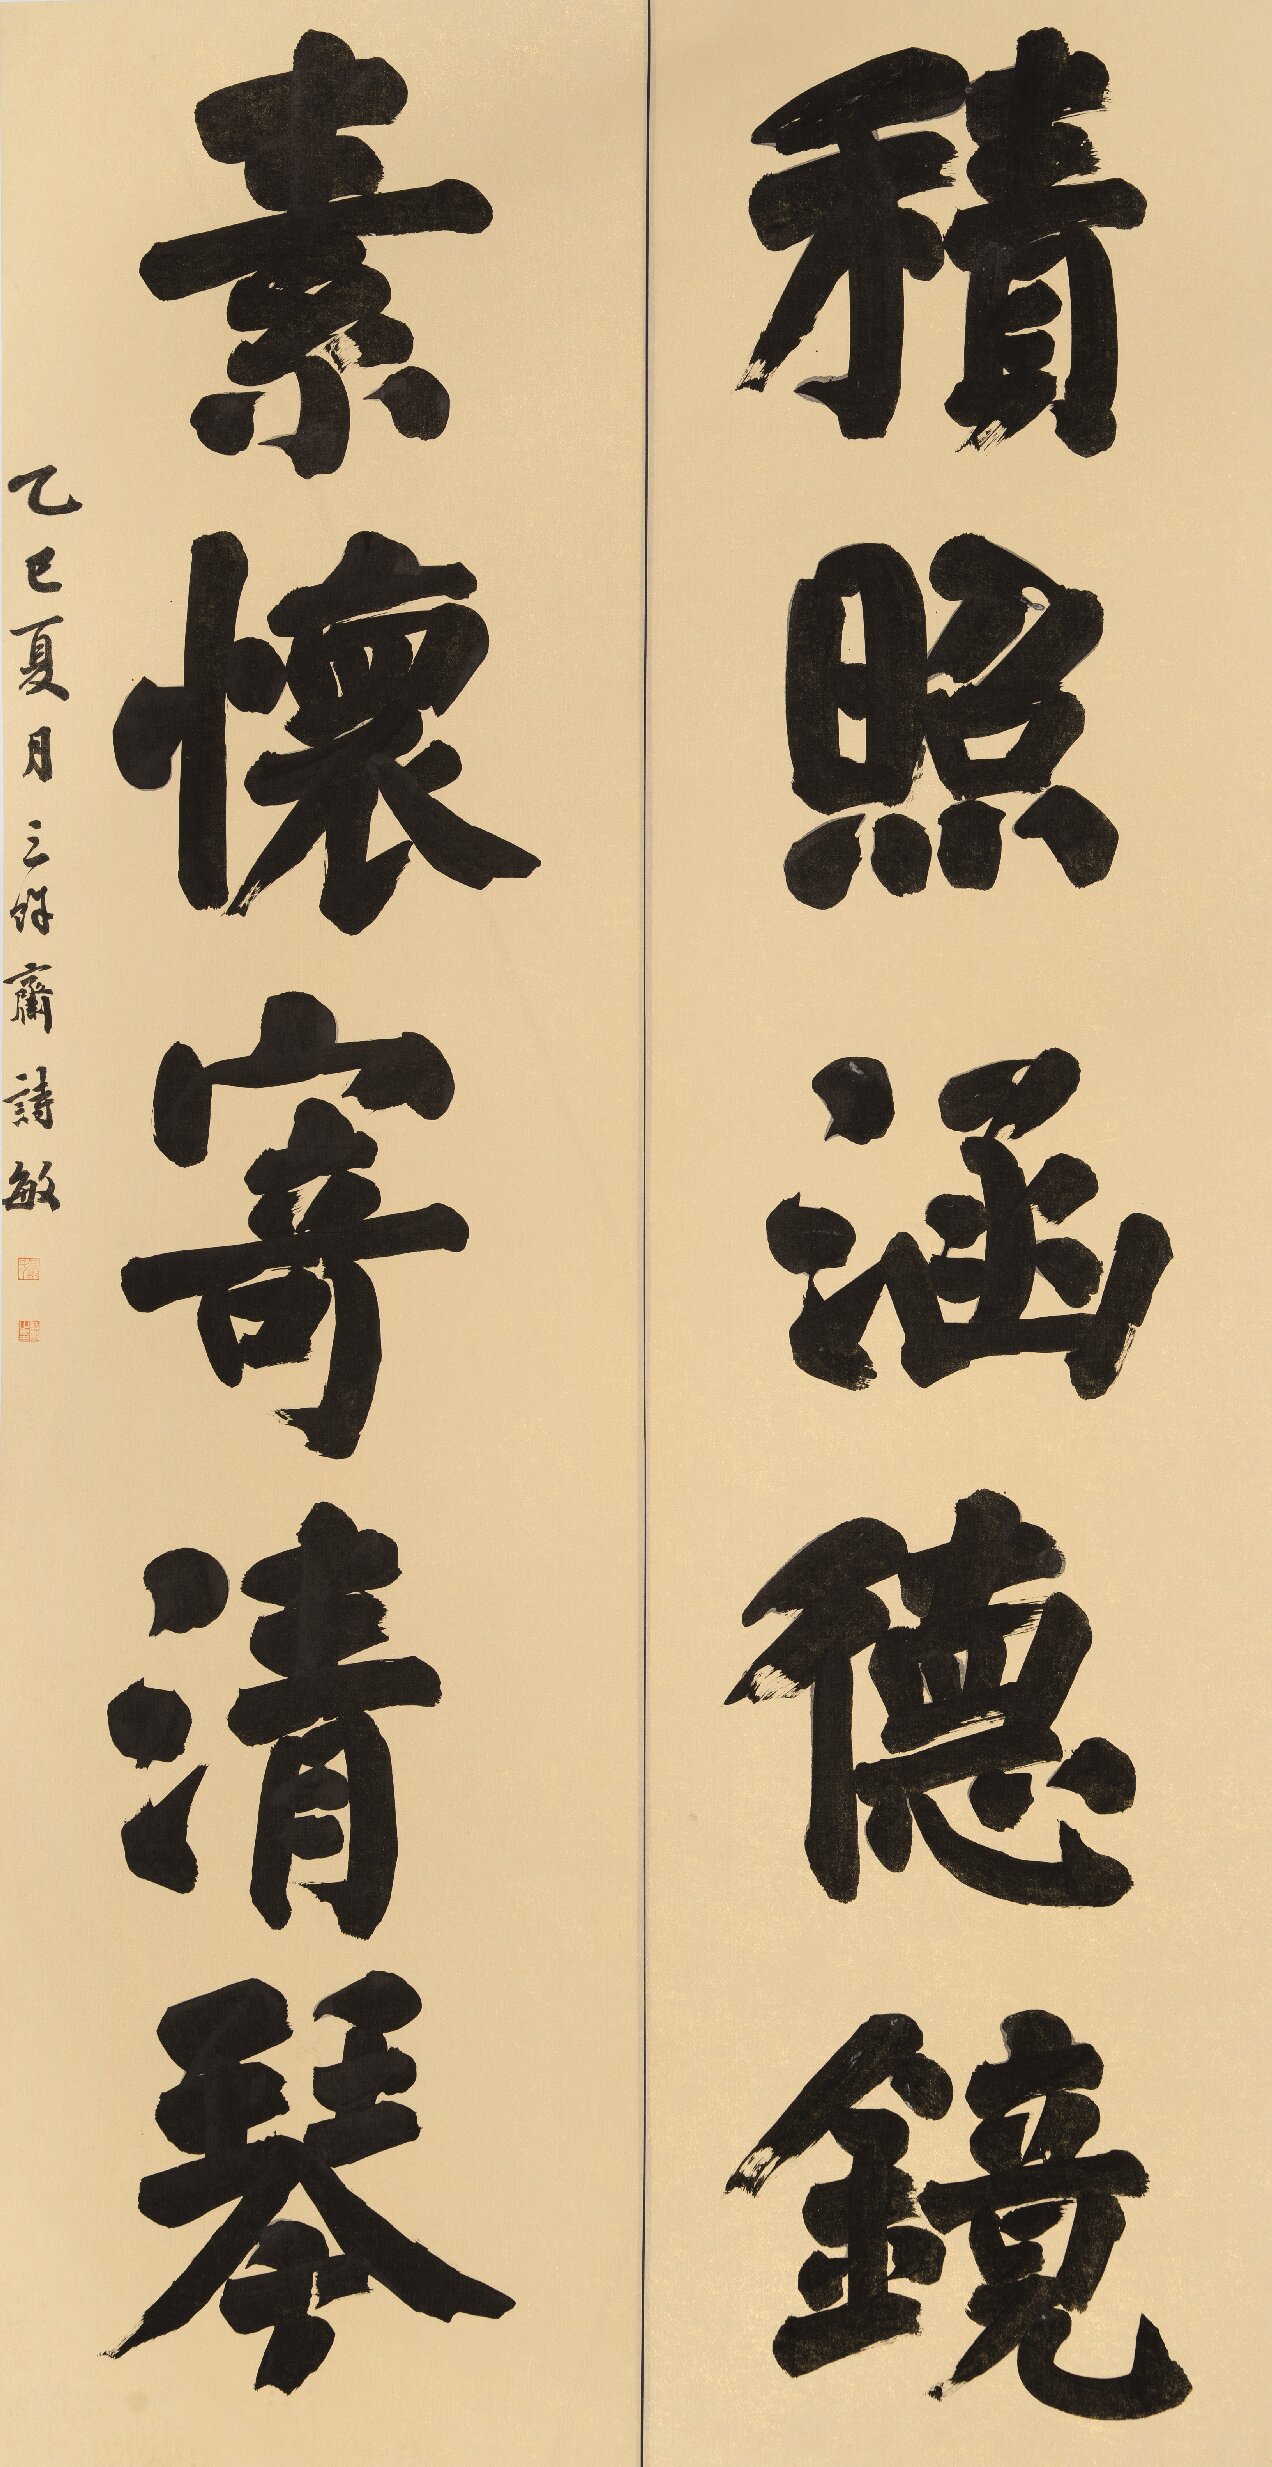 積照涵德鏡
素懷寄清琴
乙巳夏月三餘齋詩敏